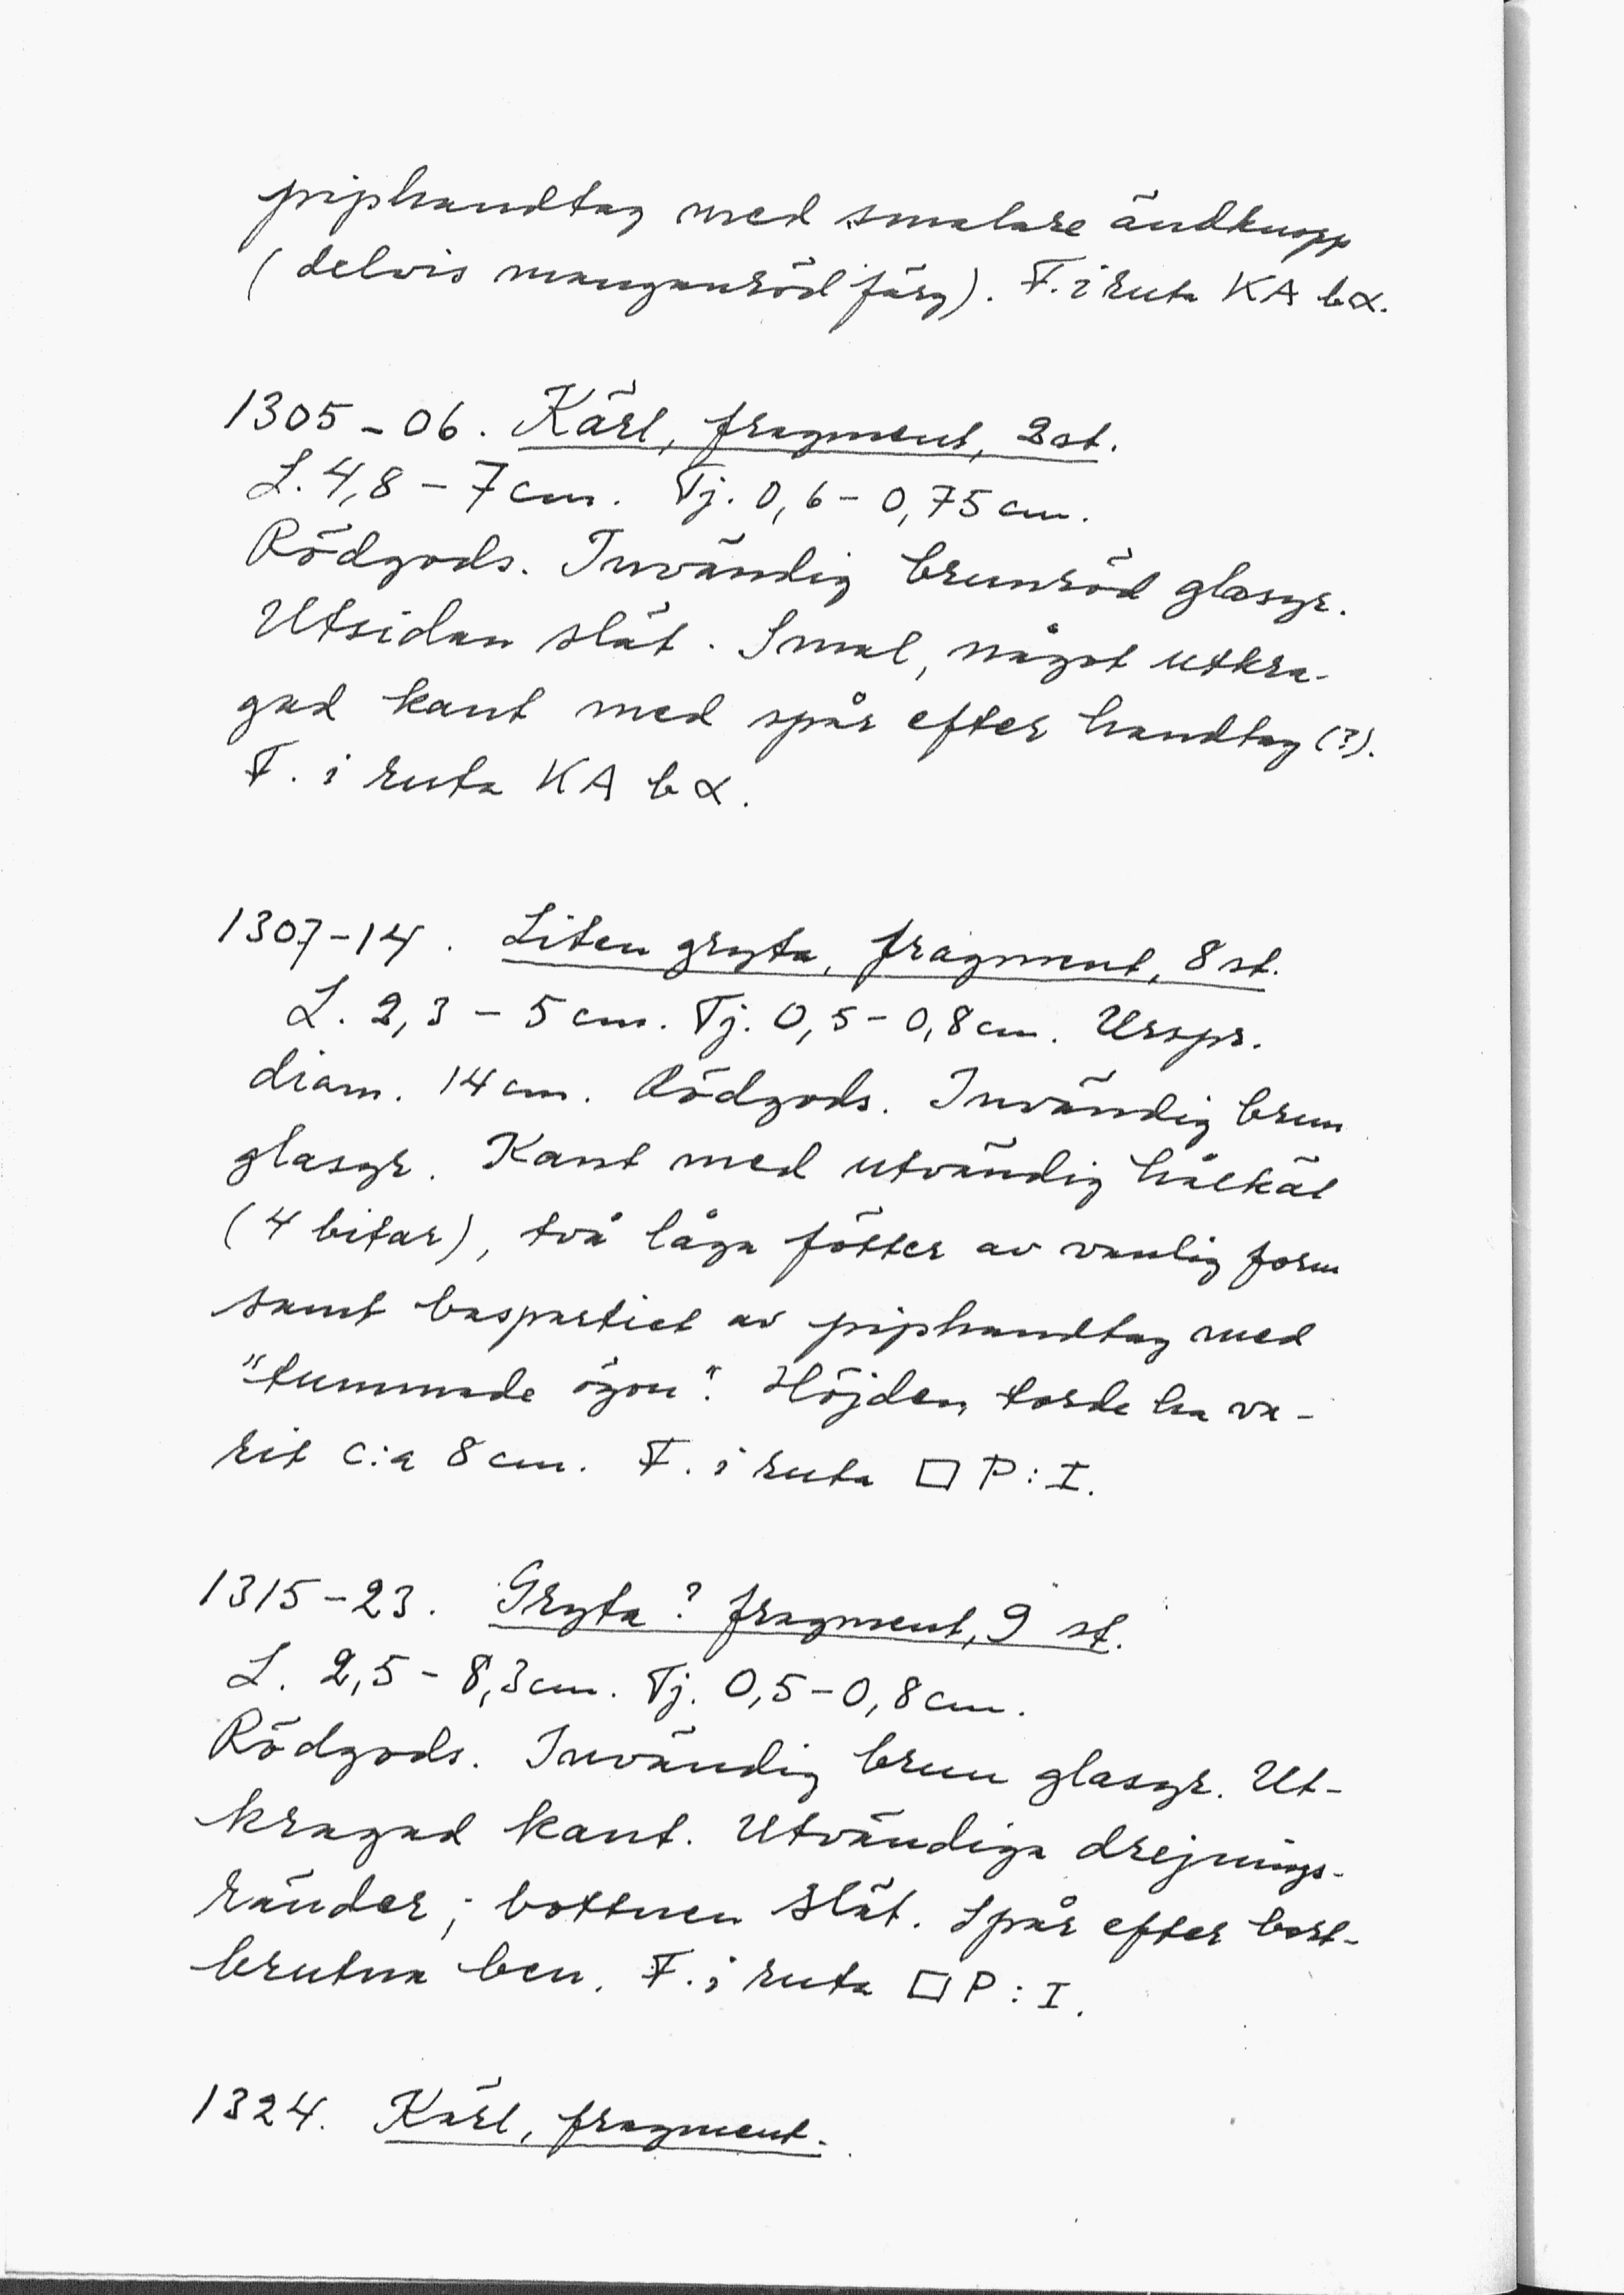 piphandtag med smalare ändknopp
(delvis manganröd färg). F. i ruta KA b α.
1305-06. Kärl, fragment, 2 st.
L. 4,8 - 7 cm. Tj. 0,6 - 0,75 cm.
Rödgods. Invändig brunröd glasyr.
Utsidan slät. Smal, något utkra-
gad kant med spår efter handtag (?).
F. i ruta KA b α.
1307-14. Liten gryta, fragment, 8 st.
L. 2,3 - 5 cm. Tj. 0,5 - 0,8 cm. Urspr.
diam. 14 cm. Rödgods. Invändig brun
glasyr. Kant med utvändig hålkäl
(4 bitar), två låga fötter av vanlig form
samt baspartiet av piphandtag med
"tummade ögon". Höjden torde ha va-
rit c:a 8 cm. F. i ruta □ P: I.
1315-23. Gryta? fragment, 9 st.
L. 2,5 - 8,3 cm. Tj. 0,5 - 0,8 cm.
Rödgods. Invändig brun glasyr. Ut-
kragad kant. Utvändiga drejnings-
ränder; bottnen slät. Spår efter bort-
brutna ben. F. i ruta □ P: I.
1324. Kärl, fragment.